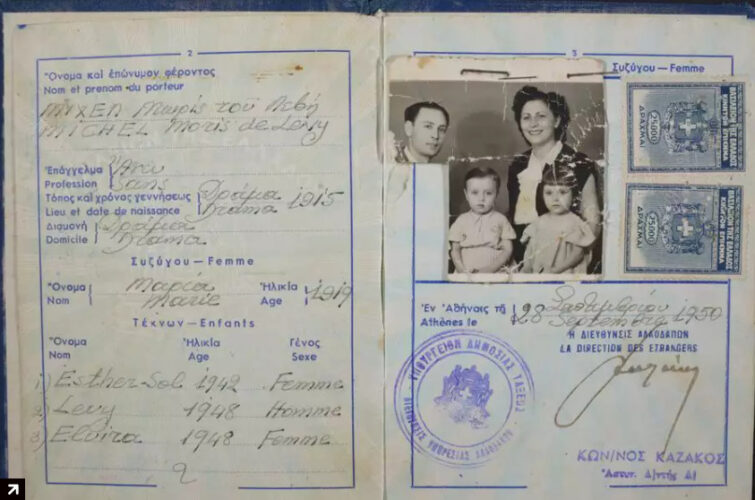 2
Ὄνομα καὶ ἐπώνυμον φέροντος
Nom et prenom du porteur
ΜΙΧΕΛ Μωρίς τοῦ Λεβή
MICHEL Moris de Levy
Ἐπάγγελμα Ἄνευ
Profession Sans
Τόπος καὶ χρόνος γεννήσεως Δράμα 1915
Lieu et date de naissance Drama
Διαμονή Δράμα
Domicile Drama
Συζύγου – Femme
Ὄνομα Μαρία Ἡλικία 1919
Nom Marie Age
Τέκνων – Enfants
Ὄνομα Ἡλικία Γένος
Nom Age Sexe
1) Esther-Sol 1942 Femme
2) Levy 1948 Homme
3) Elvira 1948 Femme
3
Συζύγου – Femme
ΒΑΣΙΛΕΙΟΝ ΤΗΣ ΕΛΛΑΔΟΣ
ΚΙΝΗΤΟΝ ΕΠΙΣΗΜΑ
25000
ΔΡΑΧΜΑΙ
ΒΑΣΙΛΕΙΟΝ ΤΗΣ ΕΛΛΑΔΟΣ
ΚΙΝΗΤΟΝ ΕΠΙΣΗΜΑ
25000
ΔΡΑΧΜΑΙ
Ἐν Ἀθήναις τῇ 28 Σεπτεμβρίου 1950
Athènes le Septembre
Η ΔΙΕΥΘΥΝΣΙΣ ΑΛΛΟΔΑΠΩΝ
LA DIRECTION DES ETRANGERS
ΥΠΟΥΡΓΕΙΟΝ ΔΗΜΟΣΙΑΣ ΤΑΞΕΩΣ
ΚΩΝ/ΝΟΣ ΚΑΖΑΚΟΣ
Ἀστυν. Δ/ντὴς Α΄